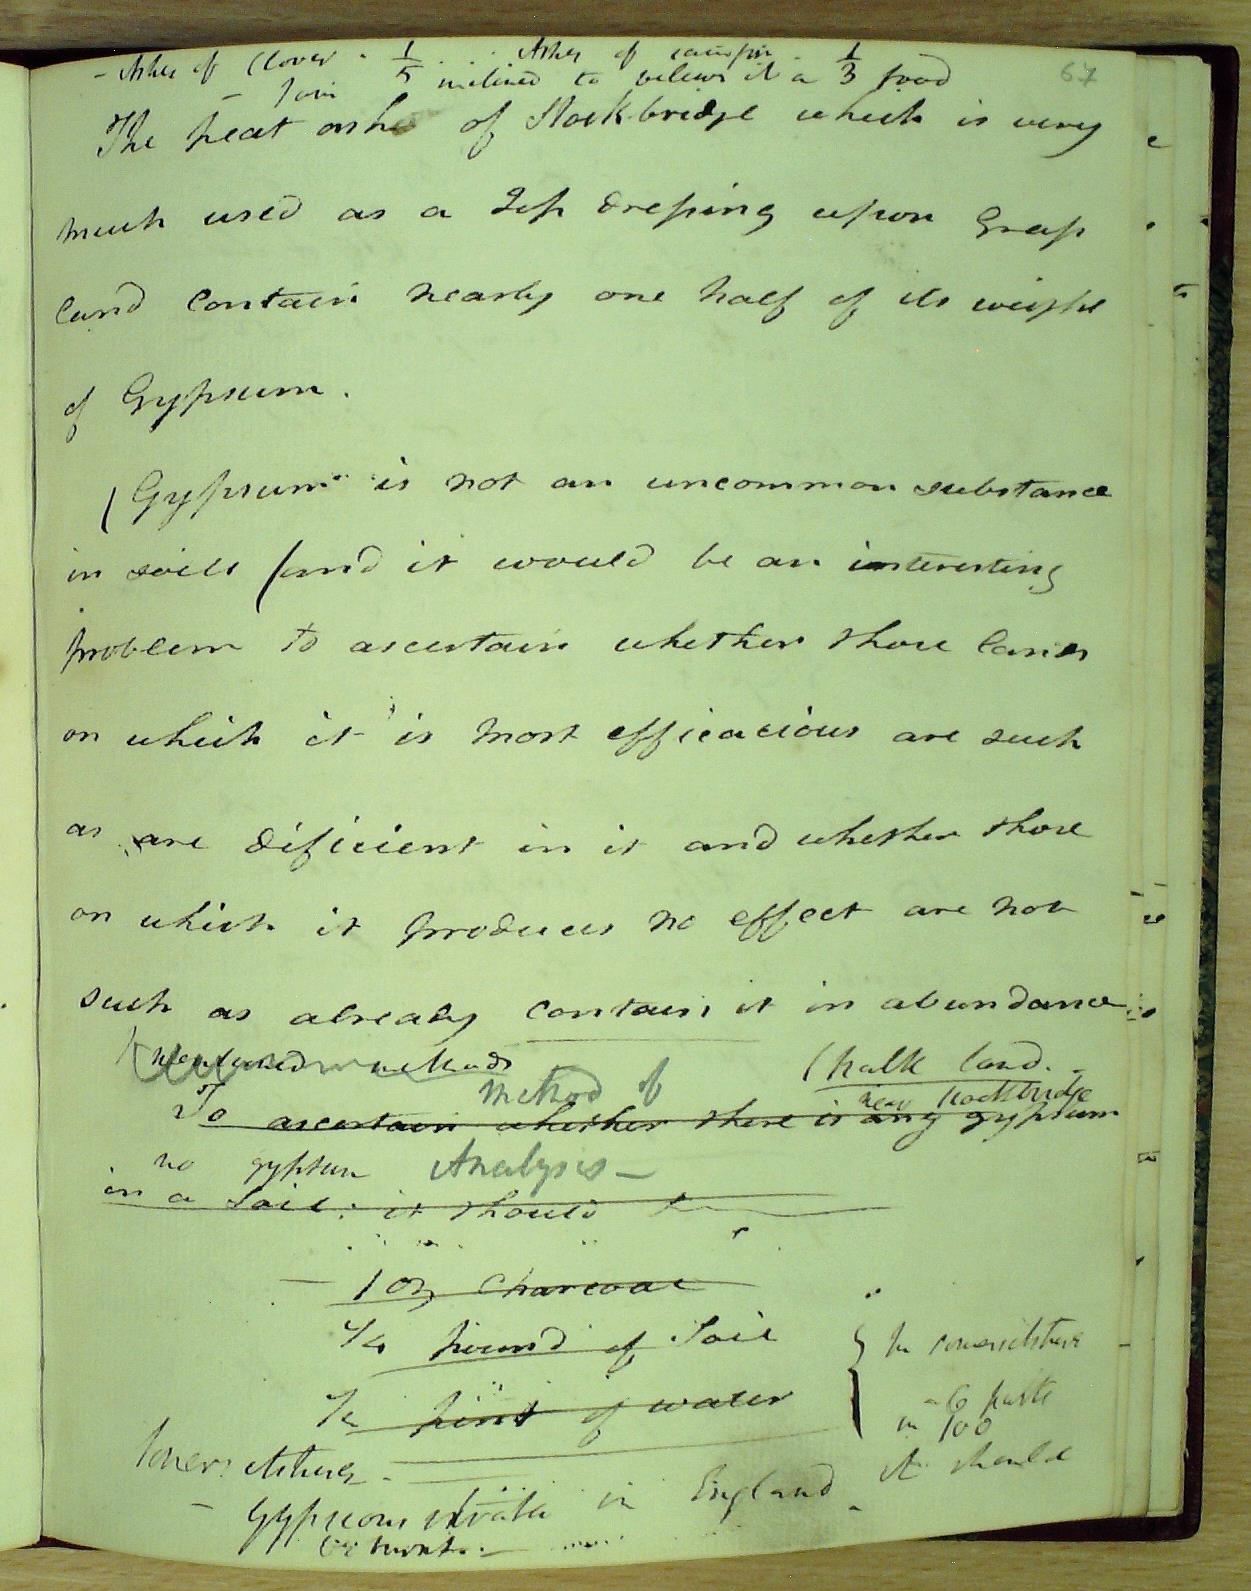 - Ashes of Clover - 1/5 . Ashes of sainfoin - 1/3
- I am inclined to believe it a food
67
The peat ashes of Stockbridge which is very
much used as a Top dressing upon Grass
land contain nearly one half of its weight
of Gypsum.
(Gypsum is not an uncommon substance
in soils (and it would be an interesting
problem to ascertain whether those lands
on which it is most efficacious are such
as are dificient in it and whether those
on which it produces no effect are not
such as already contain it in abundance
methods
Chalk land.
Method of
near Stockbridge
To ascertain whether there is any gypsum
no gypsum Analysis -
in a Soil; it should
- 1 oz Charcoal
1/4 pound of Soil
In Somersetshire
1/2 pint of water
- 6 parts
in 100
Somersetshire -
it should
- Gypseous strata in England
be burnt. -